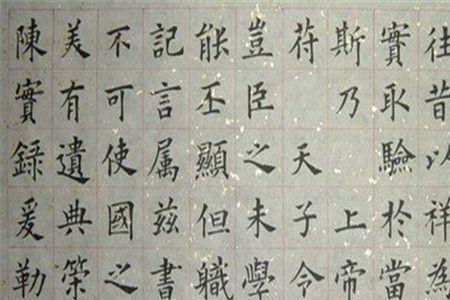 往昔以祥為
實取驗於當
斯乃 上帝
符 天子令
豈臣之未學
能丕顯但職
記言属茲書
不可使國之
美有遺典筞
陳實録爰勒